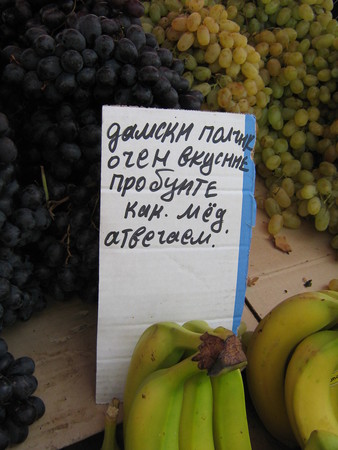 дамски палчик
очен вкусние
пробуите
кан. мёд
атвечаем.